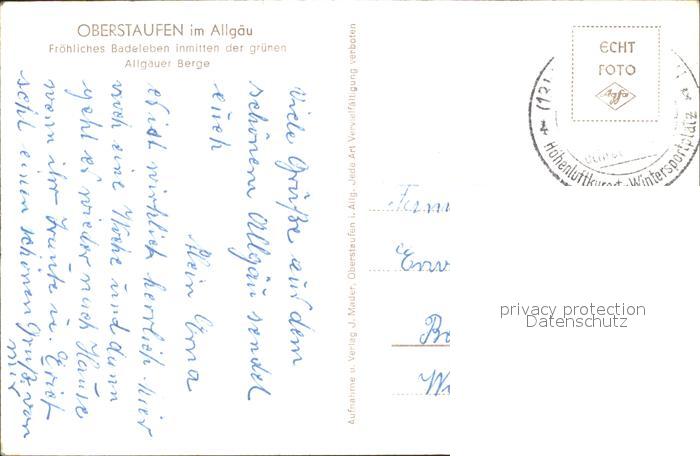 OBERSTAUFEN im Allgäu
Fröhliches Badeleben inmitten der grünen
Allgäuer Berge
Viele Grüße aus dem
schönem Allgäu sendet
euch
Klein Erna
es ist wirklich herrlich hier
noch eine Woche und dann
geht es wieder nach Hause
wenn ihr Traute u. Erich
seht einen schönen Gruß von
mir
Aufnahme u. Verlag J. Mader, Oberstaufen i. Allg. Jede Art Vervielfältigung verboten
ECHT
FOTO
Agfa
Höhenluftkurort-Wintersportplatz
Fam
privacy protection
Datenschutz